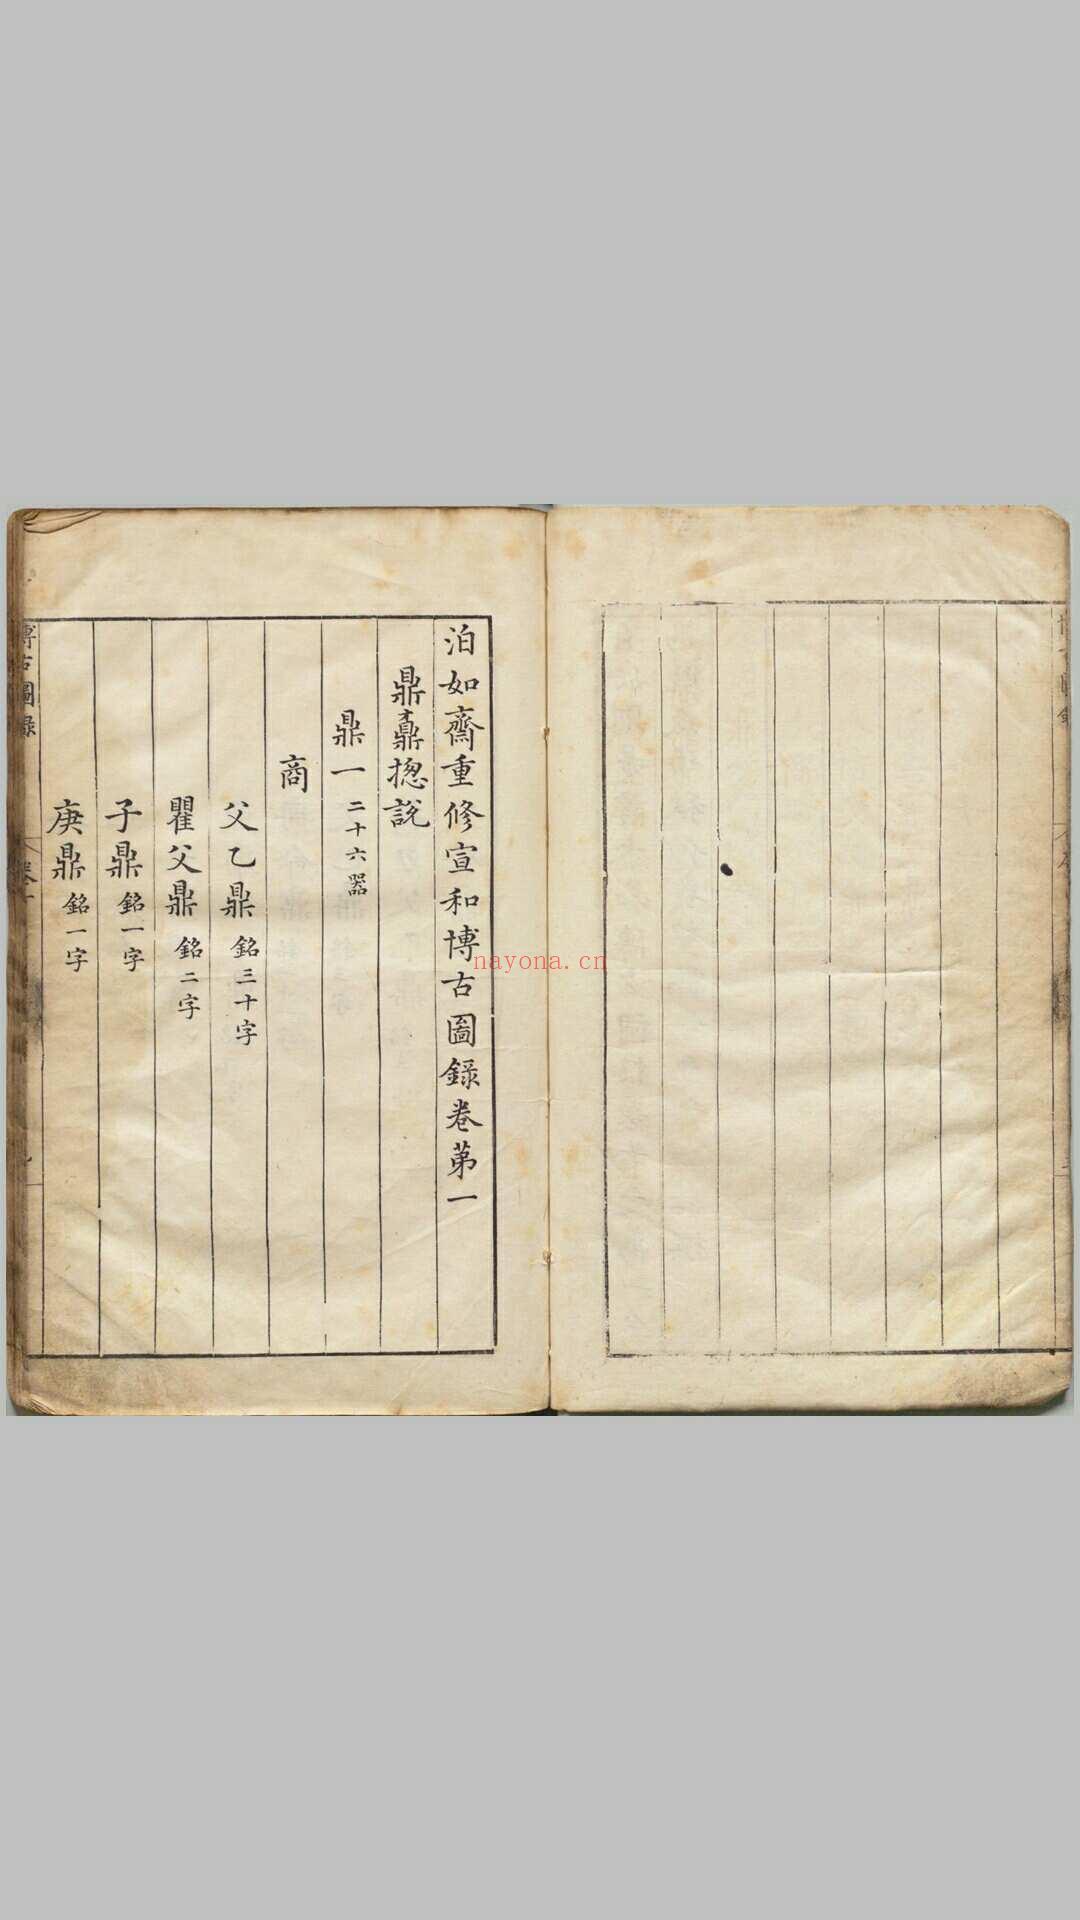 泊如齋重修宣和博古圖錄卷第一
鼎鼒揔說
鼎一 二十六器
商
父乙鼎 銘三十字
瞿父鼎 銘二字
子鼎 銘一字
庚鼎 銘一字
博古圖錄
nayona.cn